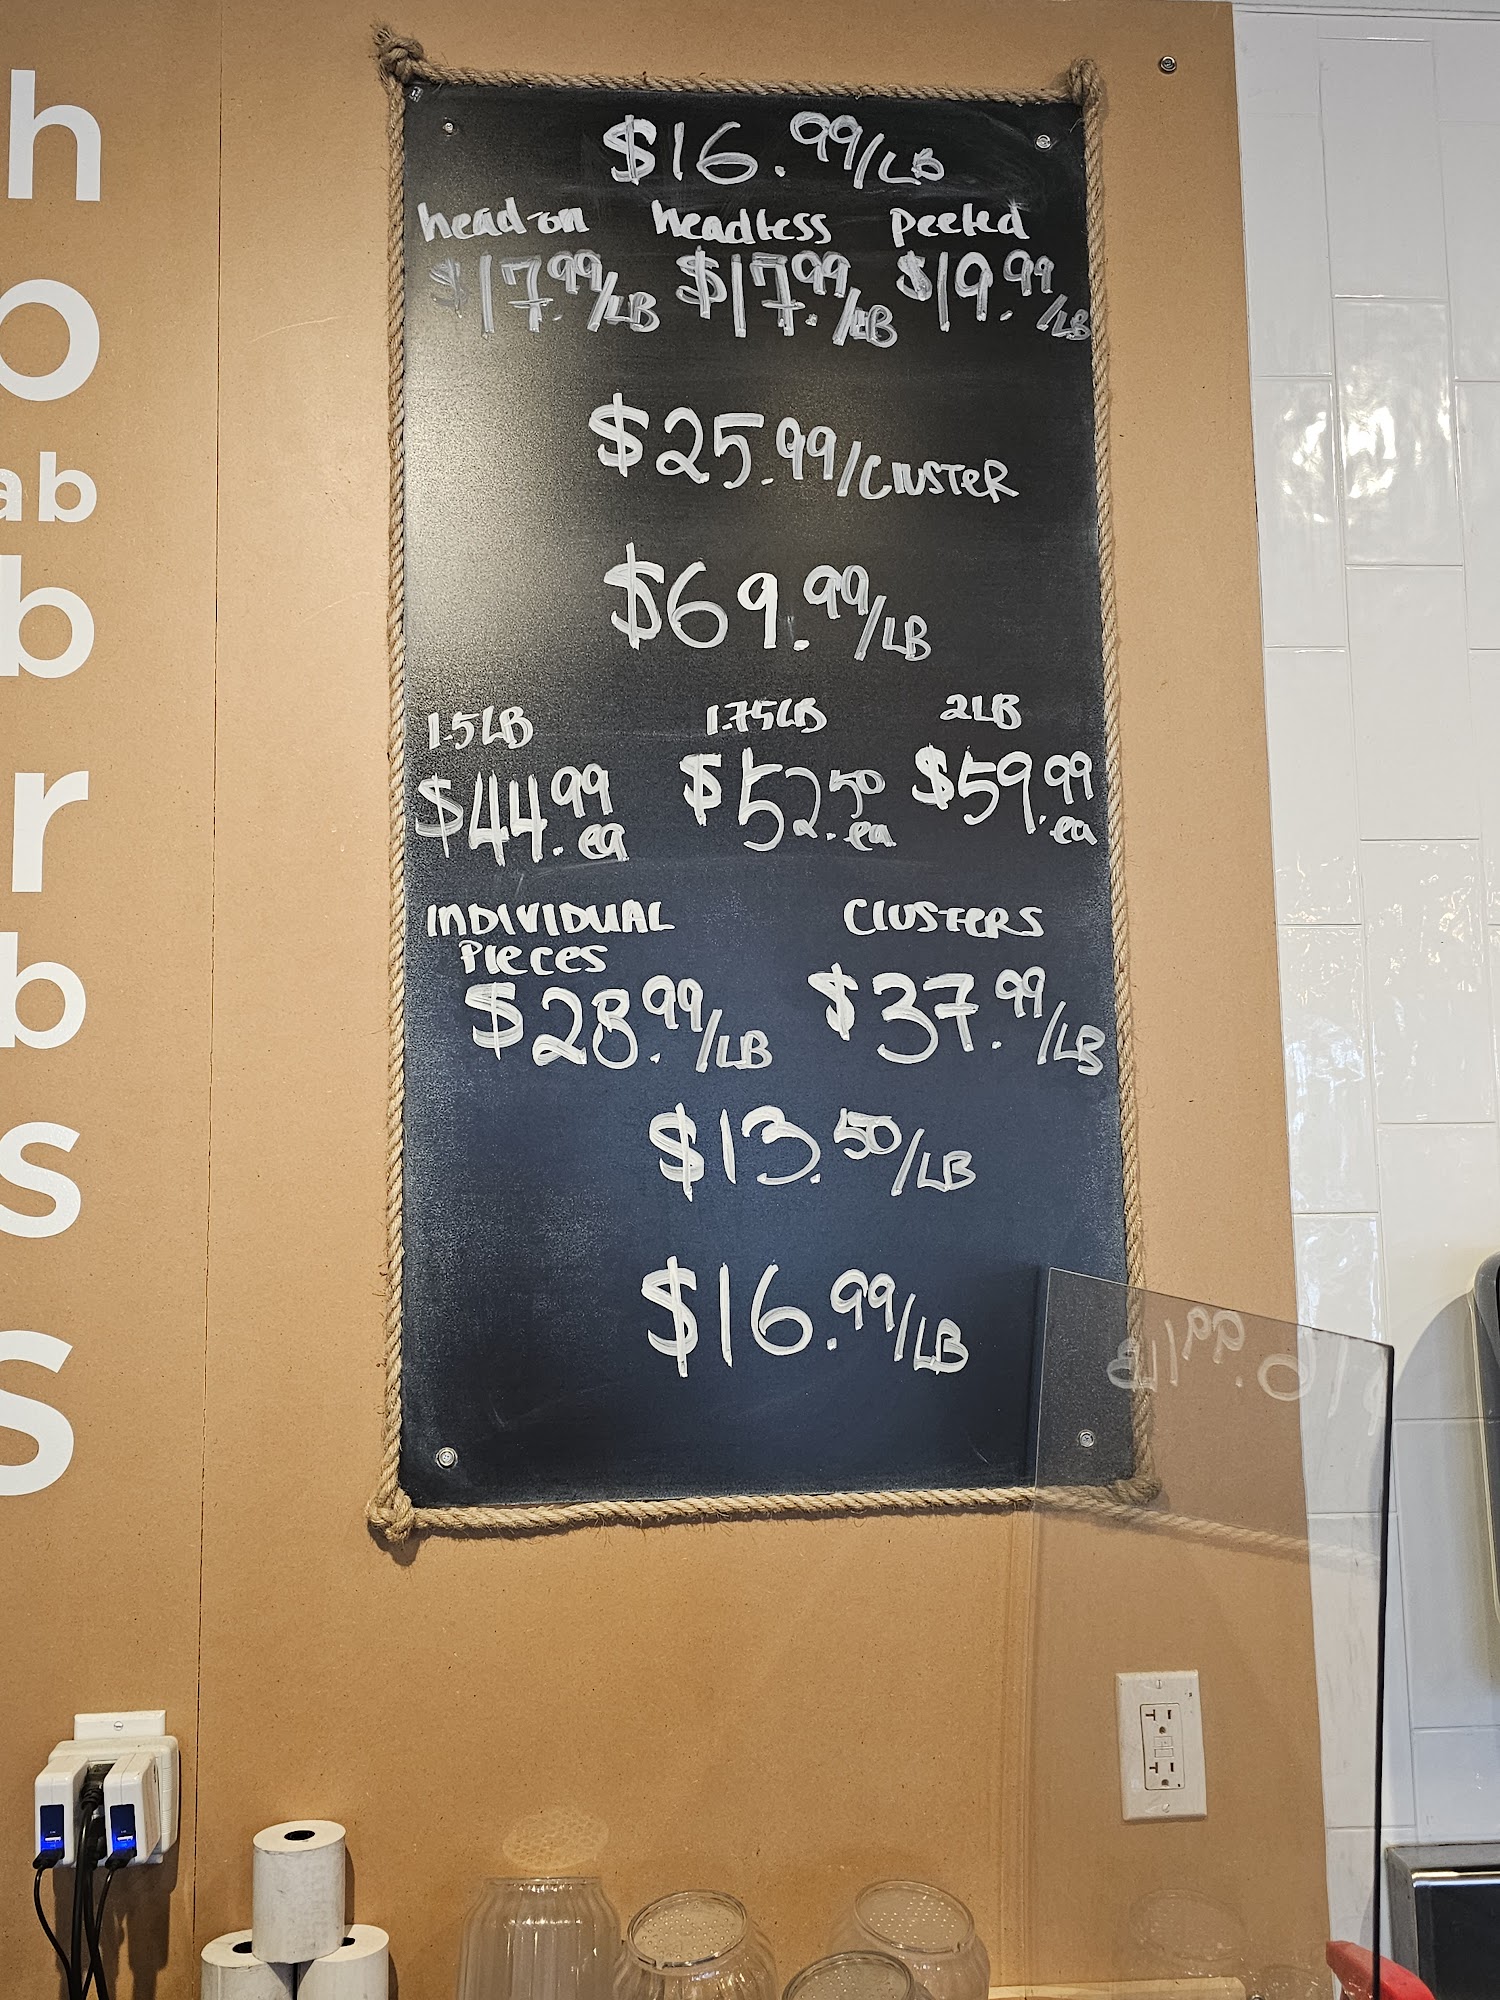 $16.99/LB
head-on headless peeled
$17.99/LB $17.99/LB $19.99/LB
$25.99/CLUSTER
$69.99/LB
1.5LB 1.75LB 2LB
$44.99 ea $52.50 ea $59.99 ea
INDIVIDUAL CLUSTERS
PIECES
$28.99/LB $37.99/LB
$13.50/LB
$16.99/LB
h
o
ab
b
r
b
s
s